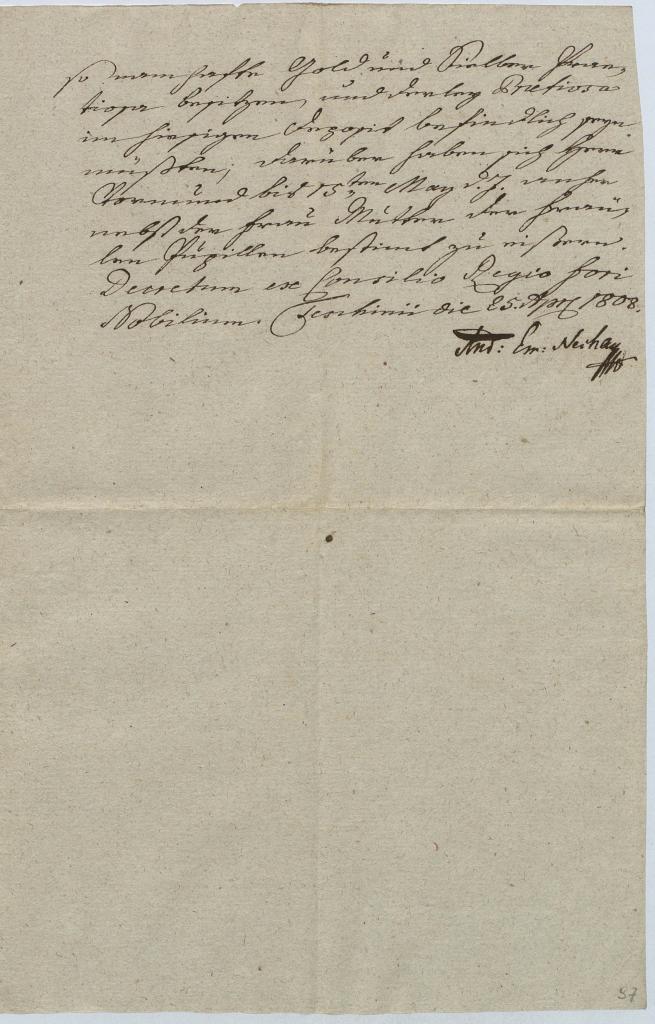 so namhafte Gold und Silber Prae,
tiosa besitzen, und derley Pretiosa
im hiesigen Deposit befindlich seyn
müßten; darüber haben sich Herr
Vormund bis 15ten May d. J. anher
nebst der Frau Mutter der Fräu,
len Pupillen bestimt zu äißern.
Decretum ex Consilio Regio fori
Nobilium. Teschinii die 25. Apr 1808.
And: Em: Nechay
37